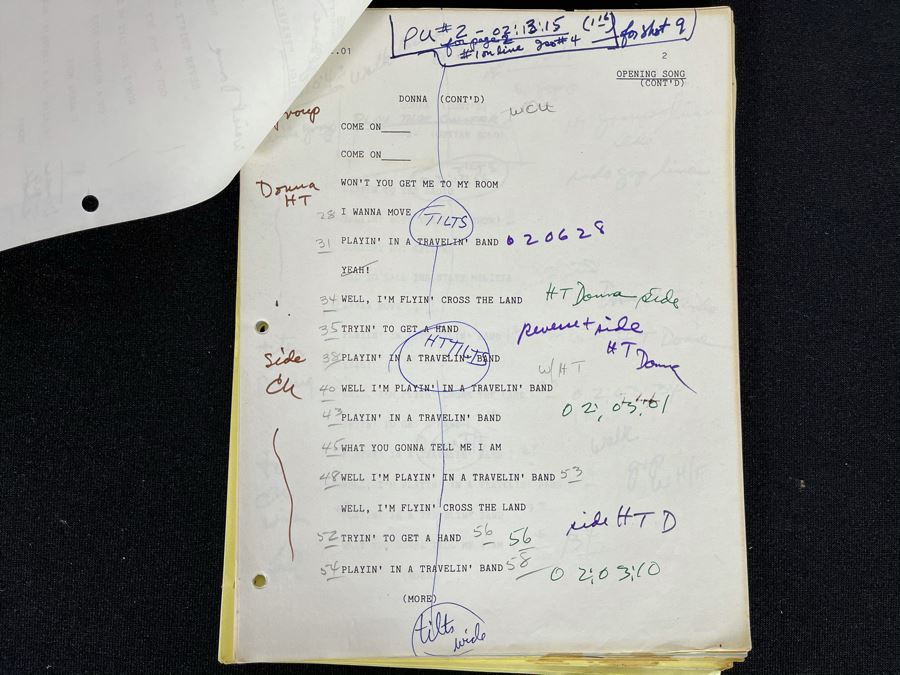 PU #2 - 02:13:15 (1:16) for shot 9
for page 2
#1 on line
.01
2
OPENING SONG
(CONT'D)
DONNA (CONT'D)
WCU
COME ON____
COME ON____
Donna WON'T YOU GET ME TO MY ROOM
HT
28 I WANNA MOVE TILTS
31 PLAYIN' IN A TRAVELIN' BAND 020628
YEAH!
34 WELL, I'M FLYIN' CROSS THE LAND HT Donna side
35 TRYIN' TO GET A HAND reverse + side
HT TILTS HT Donna
side 38 PLAYIN' IN A TRAVELIN' BAND W/HT
CU 40 WELL I'M PLAYIN' IN A TRAVELIN' BAND
43 PLAYIN' IN A TRAVELIN' BAND 02,03,01
45 WHAT YOU GONNA TELL ME I AM
48 WELL I'M PLAYIN' IN A TRAVELIN' BAND 53
WELL, I'M FLYIN' CROSS THE LAND side HT D
52 TRYIN' TO GET A HAND 56 56
54 PLAYIN' IN A TRAVELIN' BAND 58 02;03;10
(MORE)
tilts
wide